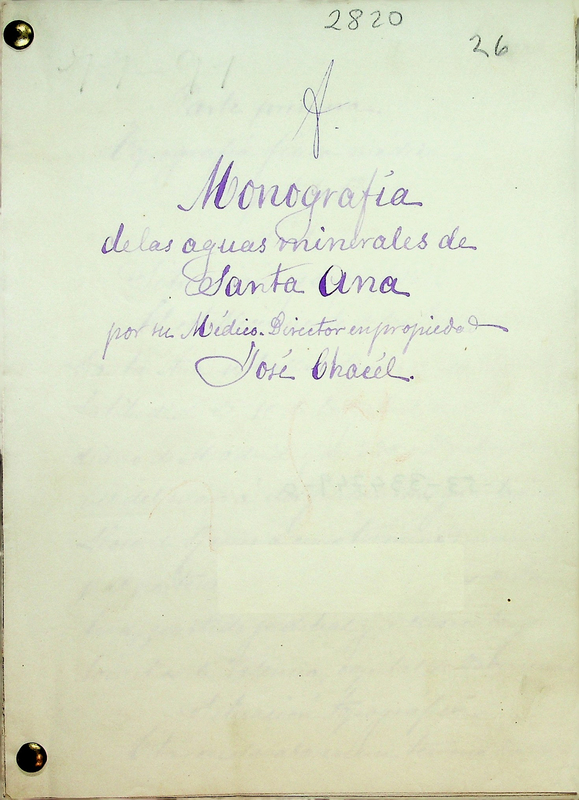 2820
26
Monografía
de las aguas minerales de
Santa Ana
por su Médico-Director en propiedad
José Chacél.